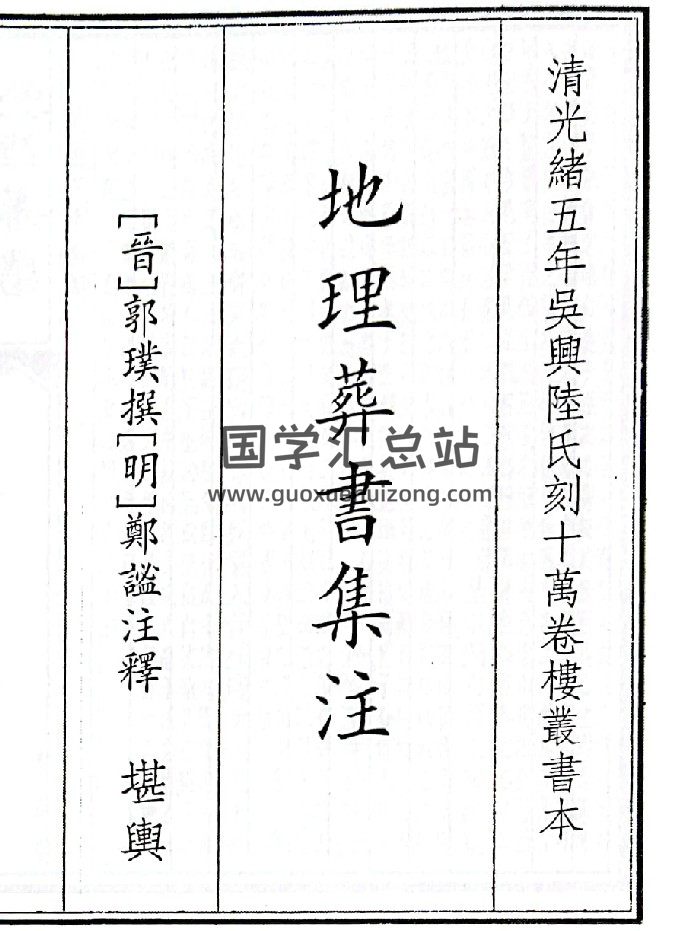 清光緒五年吳興陸氏刻十萬卷樓叢書本
地理葬書集注
[晉]郭璞撰[明]鄭謐注釋 堪輿
国学汇总站
www.guoxuehuizong.com